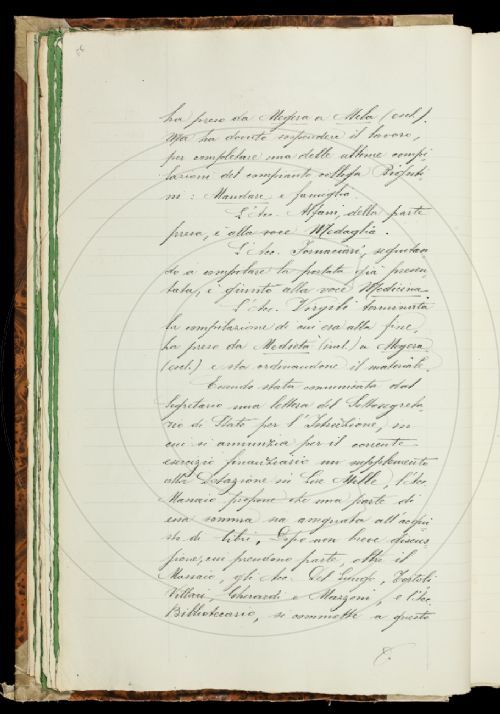 ha preso da Megera a Mela (escl.).
Ma ha dovuto sospendere il lavoro,
per completare una delle ultime compi
lazioni del compianto collega
ni: Mandare e famiglia.
L'Acc. Alfani, della parte
presa, è alla voce Medaglia.
L'Acc. Fornaciari, seguitan
do a compilare la portata già presen
tata, è giunto alla voce Medicina.
L'Acc. terminata
la compilazione di cui era alla fine,
ha preso da Medietà (incl.) a Megera
(escl.) e sta ordinandone il materiale.
Essendo stata comunicata dal
Segretario una lettera del Sottosegreta-
rio di Stato per l'Istruzione, in
cui si annunzia per il corrente
esercizio finanziario un supplemento
alla Dotazione in Lire Mille, l'Acc.
propone che una parte di
essa somma sia assegnata all'acqui
sto di libri. Dopo non breve discus
sione, cui prendono parte, oltre il
gli Acc. Del Lungo, Tortoli
Villari, Gherardi e Mazzoni, e l'Acc.
Bibliotecario, si commette a questo